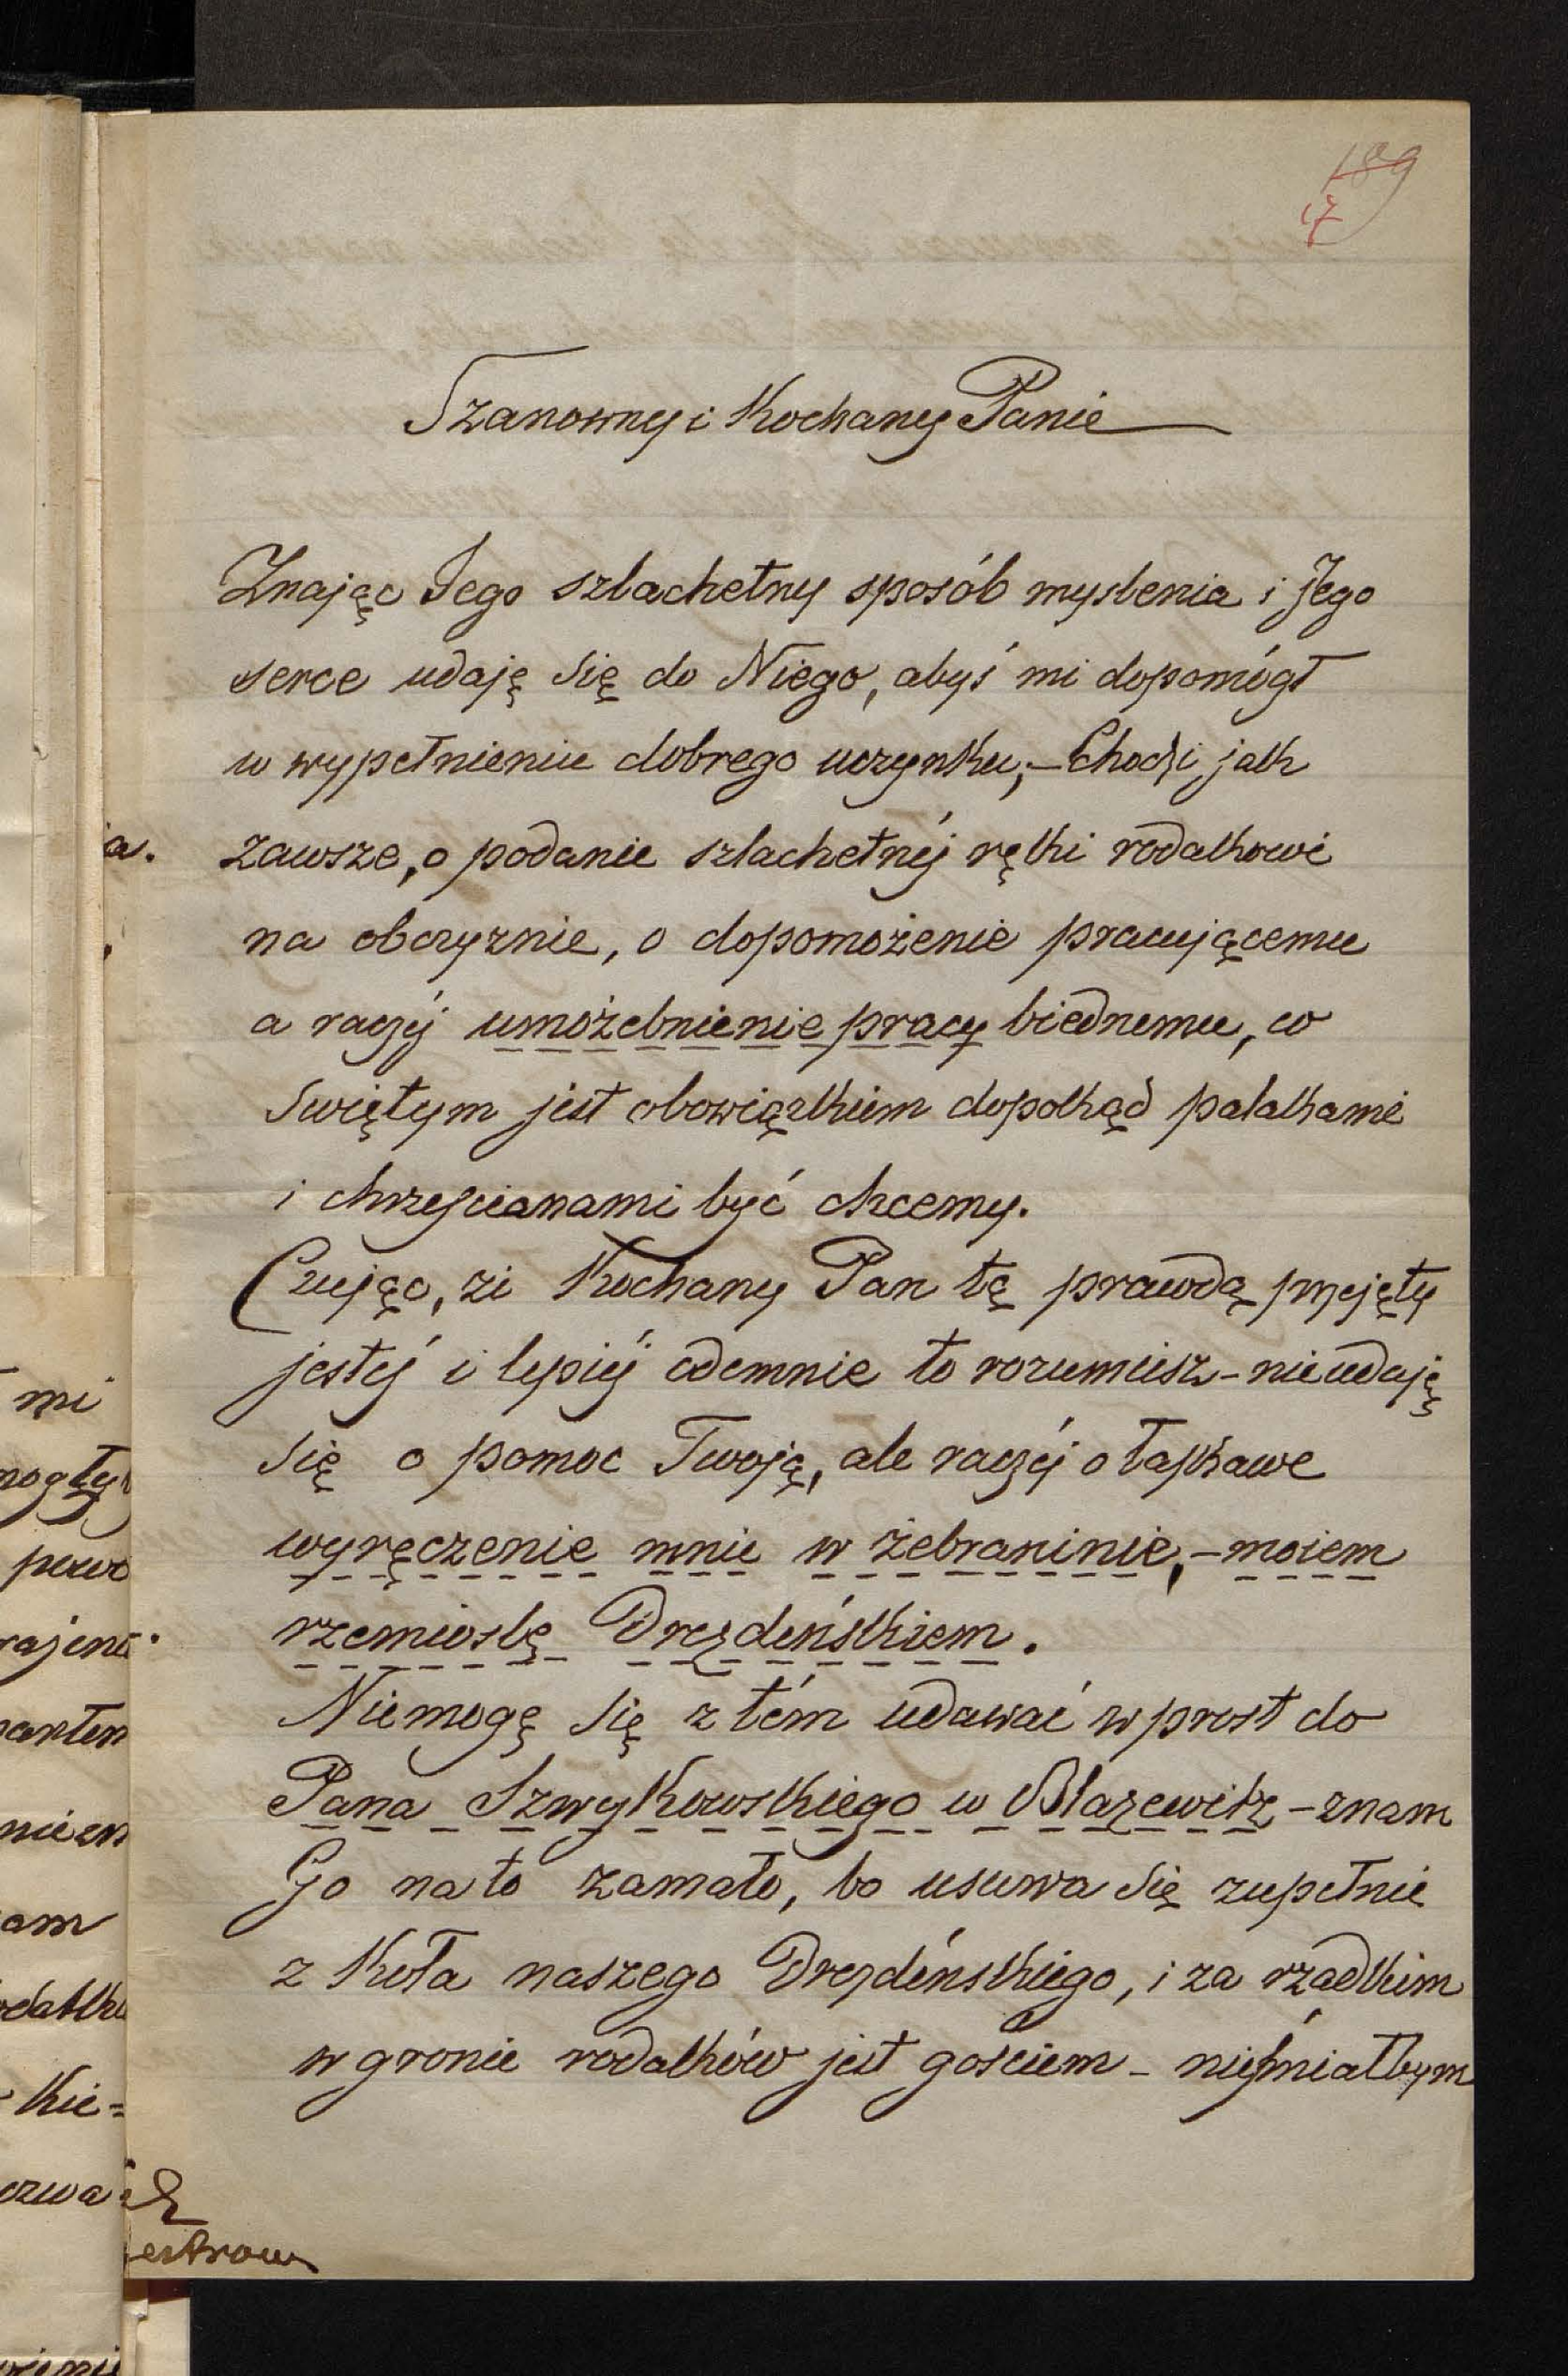 189
17
Szanowny i Kochany Panie
Znając Jego szlachetny sposób myslenia i Jego
serce udaję się do Niego, abyś mi dopomógł
w wypełnieniu dobrego uczynku, – Chodzi jak
zawsze, o podanie szlachetnéj ręki rodakowi
na obczyznie, o dopomożenie pracującemu
a raczéj umożebnienie pracy biednemu, co
Swiętym jest obowiązkiem dopokąd polakami
i chrześcianami być chcemy.
Czując, że Kochany Pan tą prawdą przejęty
jesteś i lepiéj odemnie to rozumiesz – nie udaję
się o pomoc Twoją, ale raczéj o łaskawe
wyręczenie mnie w żebraninie, – moiem
rzemiosle Drezdeńskiem.
Niemogę się z tém udawać wprost do
Pana Szwykowskiego w Blazewitz – znam
Go na to zamało, bo usuwa się zupełnie
z Koła naszego Drezdeńskiego, i za rzadkim
w gronie rodaków jest gościem – nieśmiałbym